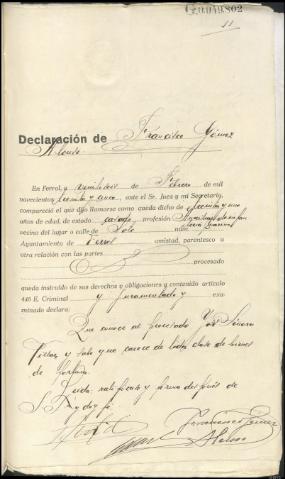 11
Declaración de Francisco Gómez
Alonso
En Ferrol, a veintidos de Febrero de mil
novecientos treinta y cinco, ante el Sr. Juez y mi Secretario,
compareció el que dijo llamarse como queda dicho de treinta y uno
años de edad, de estado casado, profesión
vecino del lugar o calle de Soto núm.
Ayuntamiento de Ferrol amistad, parentesco u
otra relación con las partes
procesado
quedó instruido de sus derechos y obligaciones y contenido artículo
446 E. Criminal y juramentado y exa-
minado declara:
Que conoce al procesado José
y sabe que carece de toda clase de bienes
de fortuna.
Leida, ratifica y firma después de
S. Sª y doy fé.
Francisco Gómez
Alonso